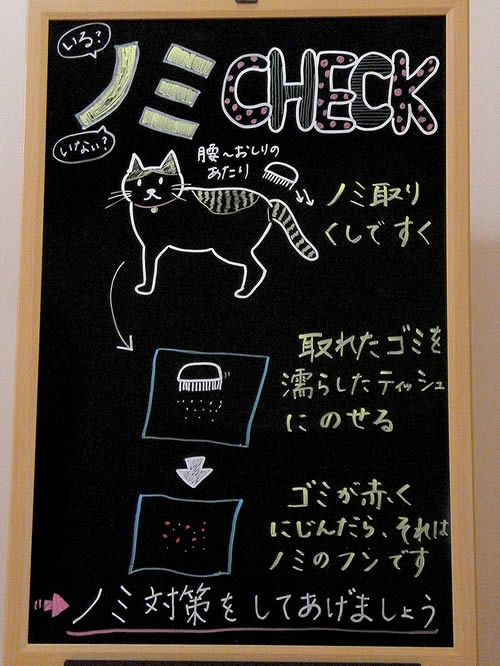 いる?
ノミCHECK
いない?
腰〜おしりの
あたり
ノミ取り
くしですく
取れたゴミを
濡らしたティッシュ
にのせる
ゴミが赤く
にじんだら、それは
ノミのフンです
ノミ対策をしてあげましょう